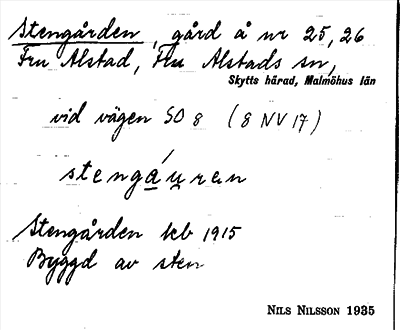 Stengården, gård å nr 25, 26
Fru Alstad, Fru Alstads sn,
Skytts härad, Malmöhus län
vid vägen SO 8 (8 NV 17)
stengáu̯ren
Stengården kb 1915
Byggd av sten
NILS NILSSON 1935